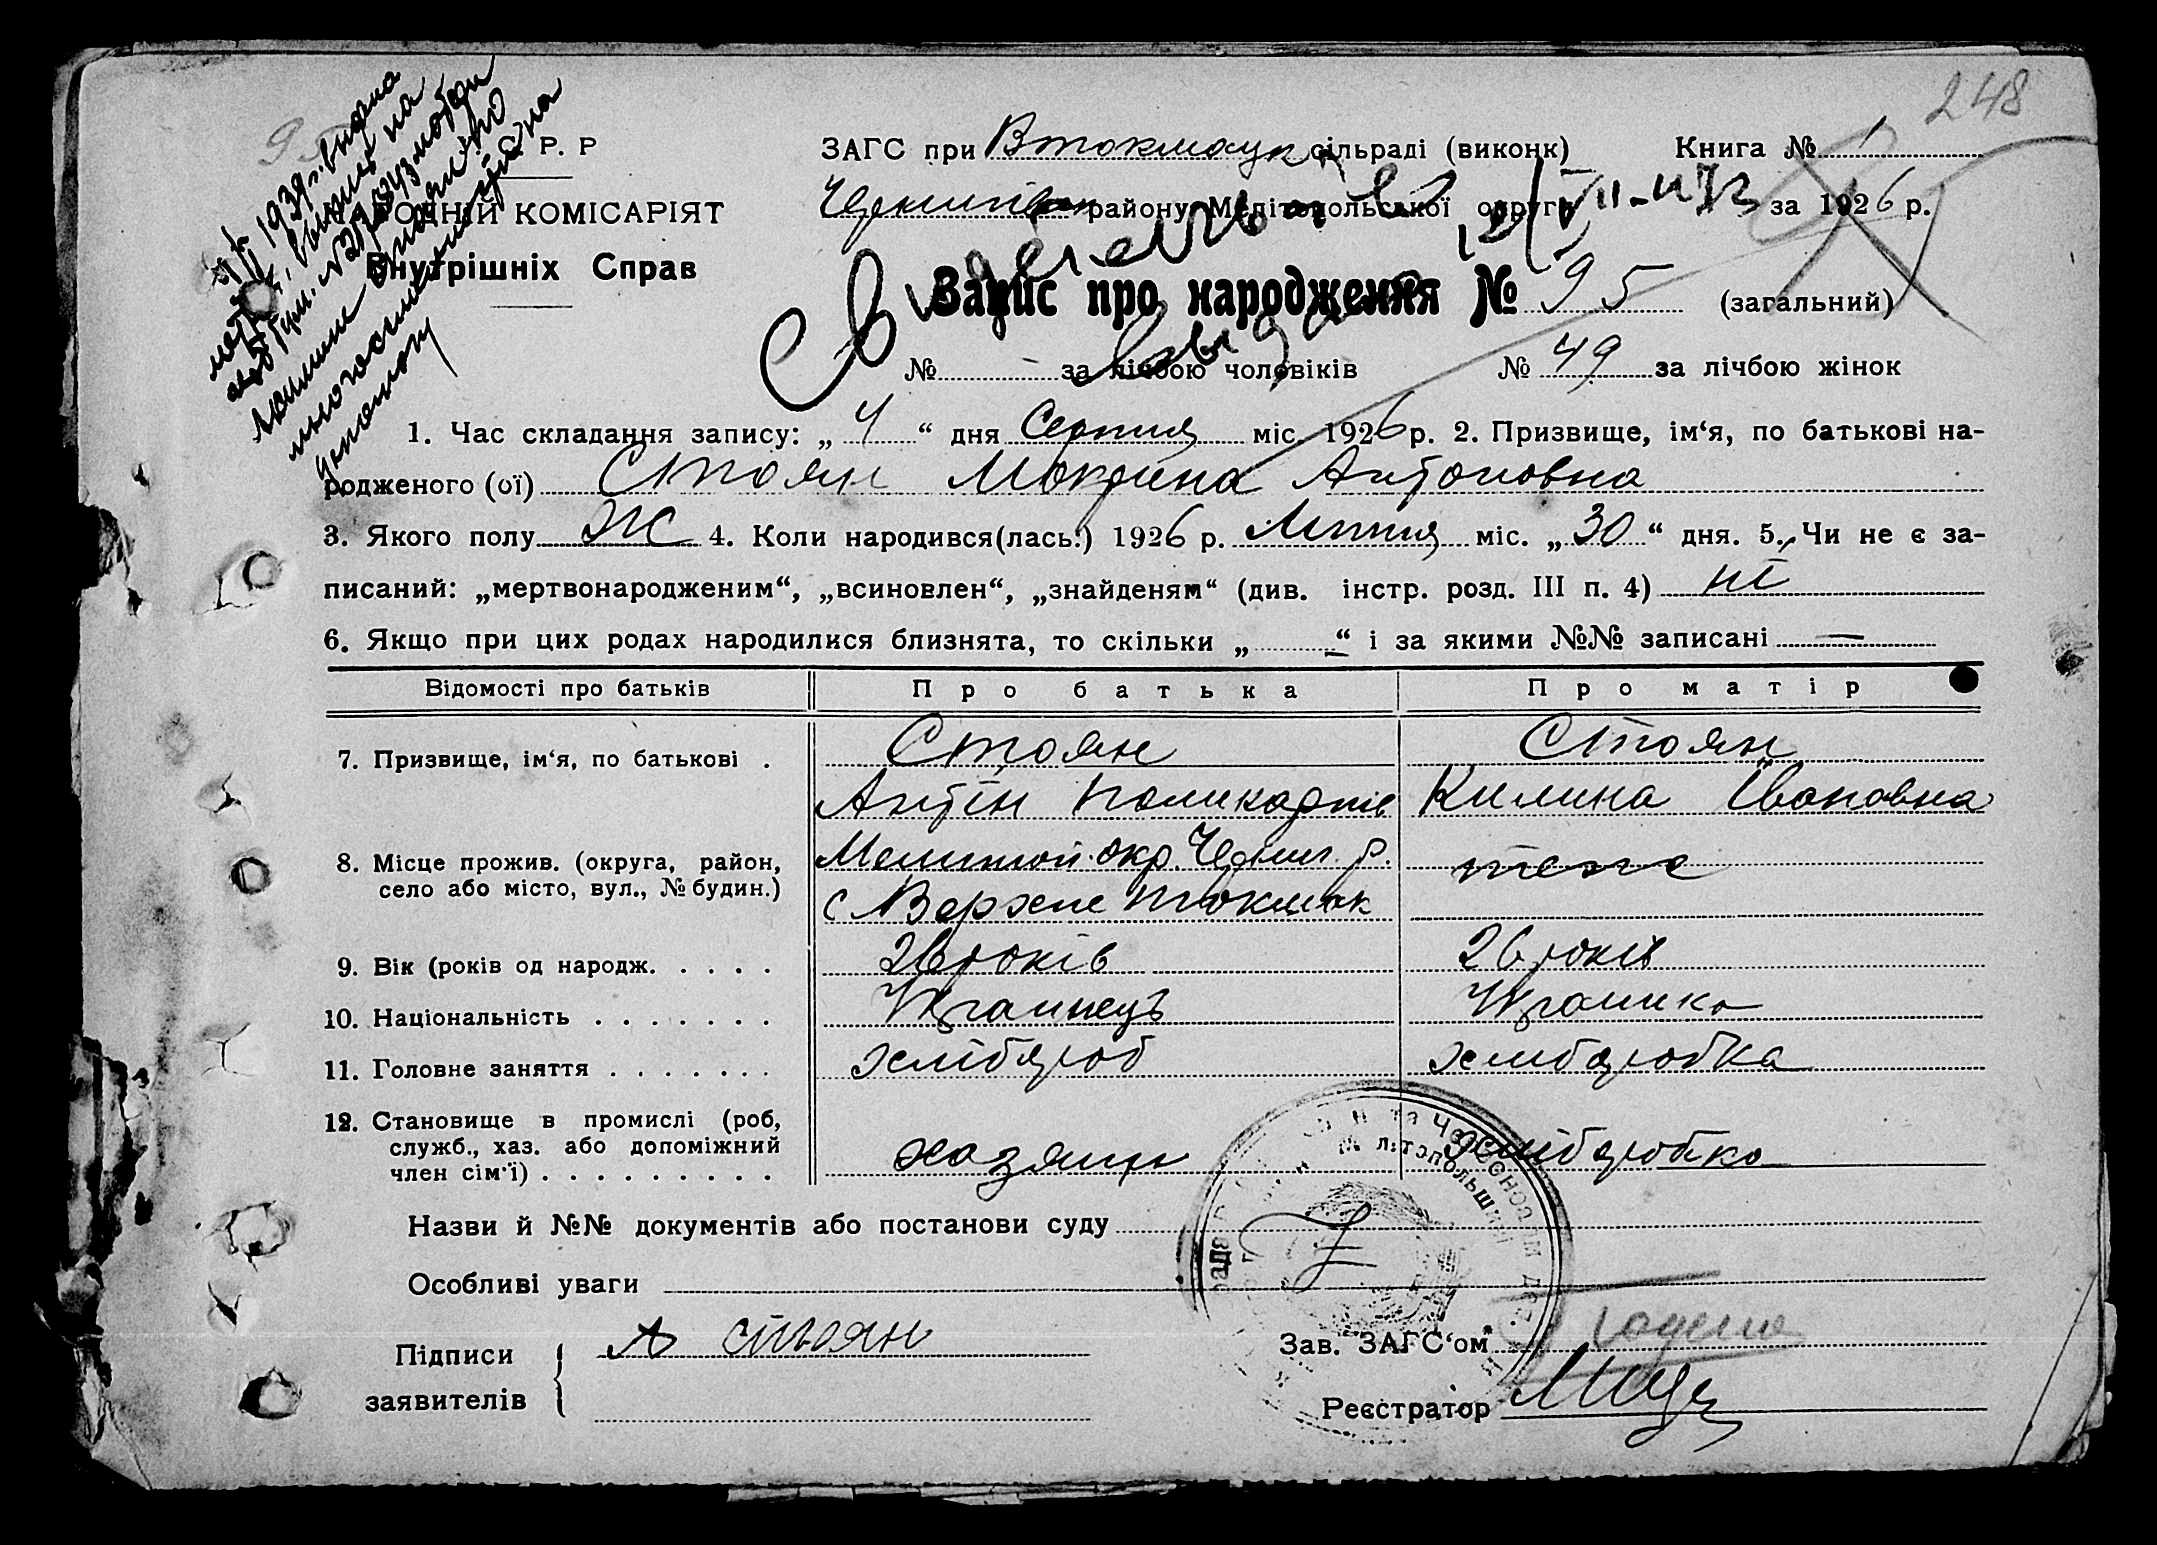 248
С. Р. Р
ЗАГС при Втокмацк сільраді (виконк) Книга № 1
НАРОДНІЙ КОМІСАРІЯТ
району Мелітопольської округ за 1926 р.
Внутрішніх Справ
Запис про народження № 95 (загальний)
№ - за лічбою чоловіків № 49 за лічбою жінок
1. Час складання запису: „ 4 “ дня Серпня міс. 1926 р. 2. Призвище, ім‘я, по батькові на-
родженого (ої) Стоян Мокрина Антоновна
3. Якого полу Ж 4. Коли народився(лась:) 1926 р. Липня міс. „ 30 “ дня. 5. Чи не є за-
писаний: „мертвонародженим“, „всиновлен“, „знайденям“ (див. інстр. розд. III п. 4) ні
6. Якщо при цих родах народилися близнята, то скільки „ - “ і за якими №№ записані —
Відомості про батьків Про батька Про матір
7. Призвище, ім‘я, по батькові . Стоян Стоян
Антін Поликарпів Килина Івановна
8. Місце прожив. (округа, район, Мелитоп. окр. Черниг. р. теж
село або місто, вул., № будин.) с Верхне Токмак
9. Вік (років од народж. . . . . 26 років 26 років
10. Національність . . . . . . . Украинець Украинка
11. Головне заняття . . . . . . . хлібороб хлиборобка
12. Становище в промислі (роб,
служб., хаз. або допоміжний
член сім‘ї) . . . . . . . . . хазяин хліборобка
Назви й №№ документів або постанови суду
Особливі уваги
Підписи А Стоян Зав. ЗАГС‘ом
заявителів Реєстратор